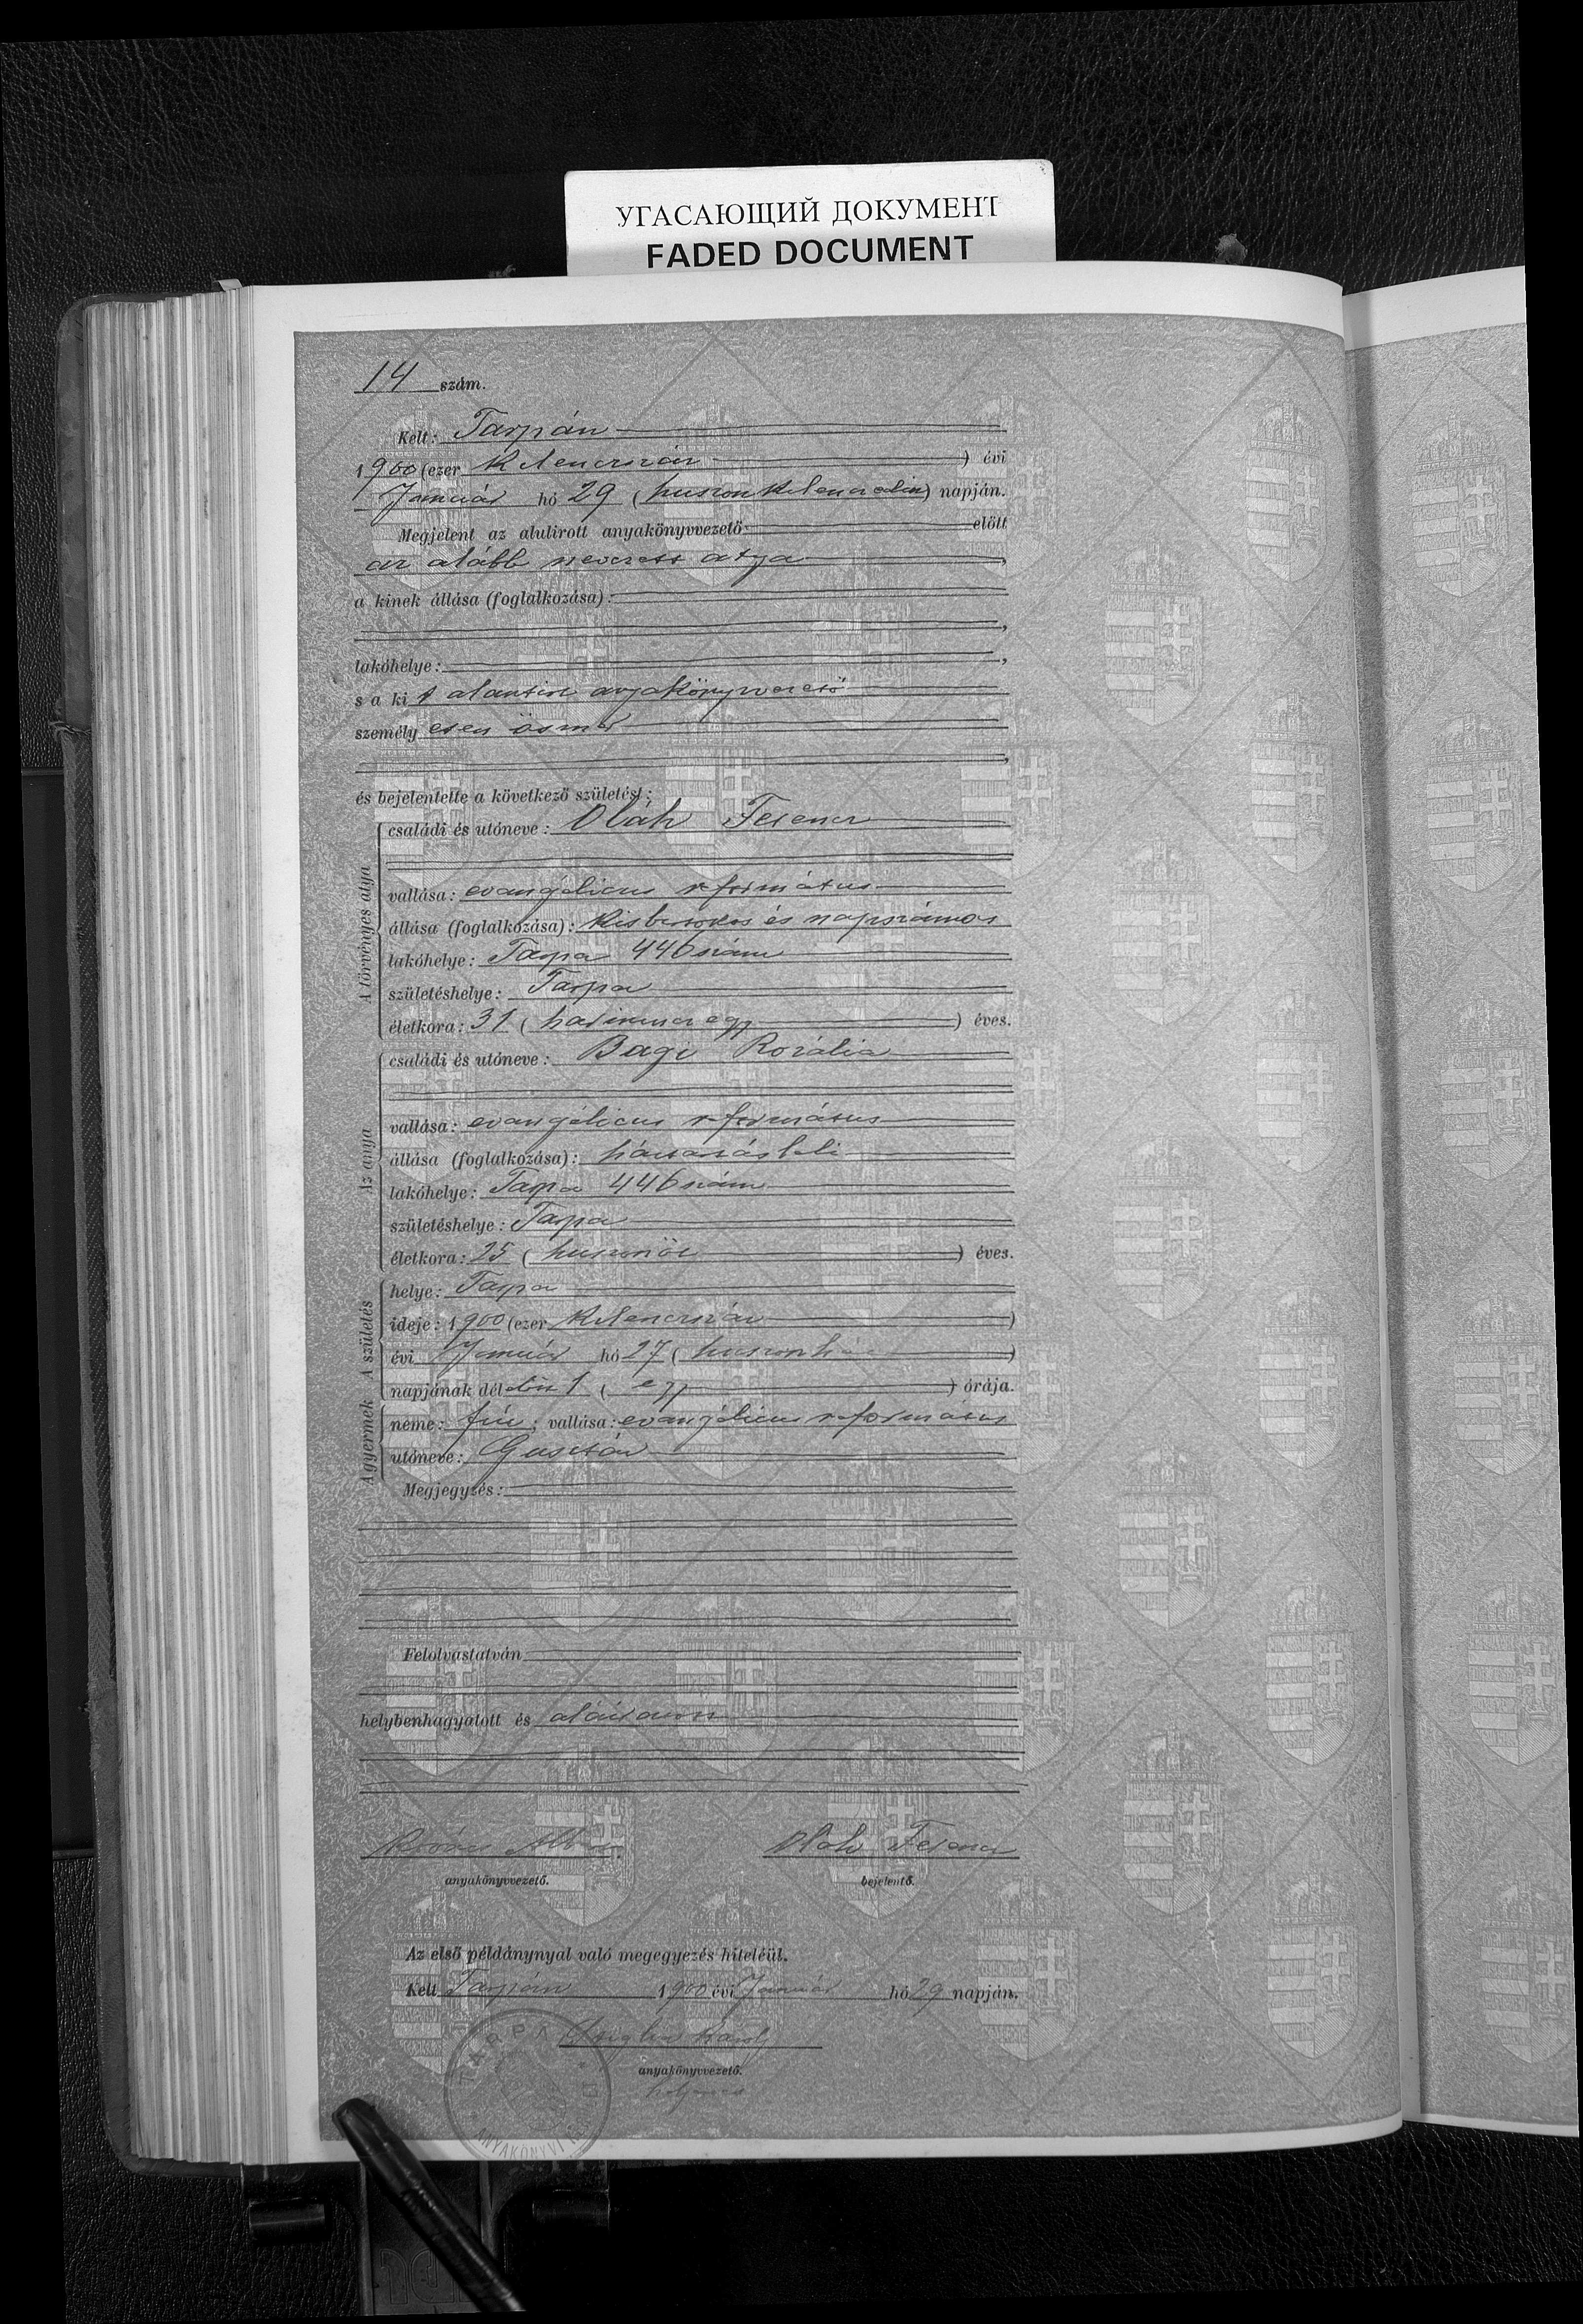 УГАСАЮЩИЙ ДОКУМЕНТ
FADED DOCUMENT
14 szám.
Kelt: Tarpán
1900 (ezer kilenczszáz) évi
Január hó 29 (huszonkilenczedik) napján.
Megjelent az alulirott anyakönyvvezető előtt
az alább nevezett atya,
a kinek állása (foglalkozása):
lakóhelye:
s a kit alantirt anyakönyvvezető
személyesen ösmer
és bejelentette a következő születést:
A törvényes atya
családi és utóneve: Oláh Ferencz
vallása: evangélicus református
állása (foglalkozása): kisbirtokos és napszámos
lakóhelye: Tarpa 446 szám
születéshelye: Tarpa
életkora: 31 (harminczegy) éves.
Az anya
családi és utóneve: Bagi Rozália
vallása: evangélicus református
állása (foglalkozása): háztartásbeli
lakóhelye: Tarpa 446 szám
születéshelye: Tarpa
életkora: 25 (huszonöt) éves.
A születés
helye: Tarpa
ideje: 1900 (ezer kilenczszáz)
évi Január hó 27 (huszonhét)
napjának délelőtt 1 (egy) órája.
A gyermek
neme: fiú; vallása: evangélicus református
utóneve: Gusztáv
Megjegyzés:
Felolvastatván
helybenhagyatott és aláiratott
Oláh Ferencz
anyakönyvvezető.
bejelentő.
Az első példánynyal való megegyezés hiteléül.
Kelt Tarpán 1900 évi Január hó 29 napján.
Károly
anyakönyvvezető.
helyettes
TARPA
ANYAKÖNYVI